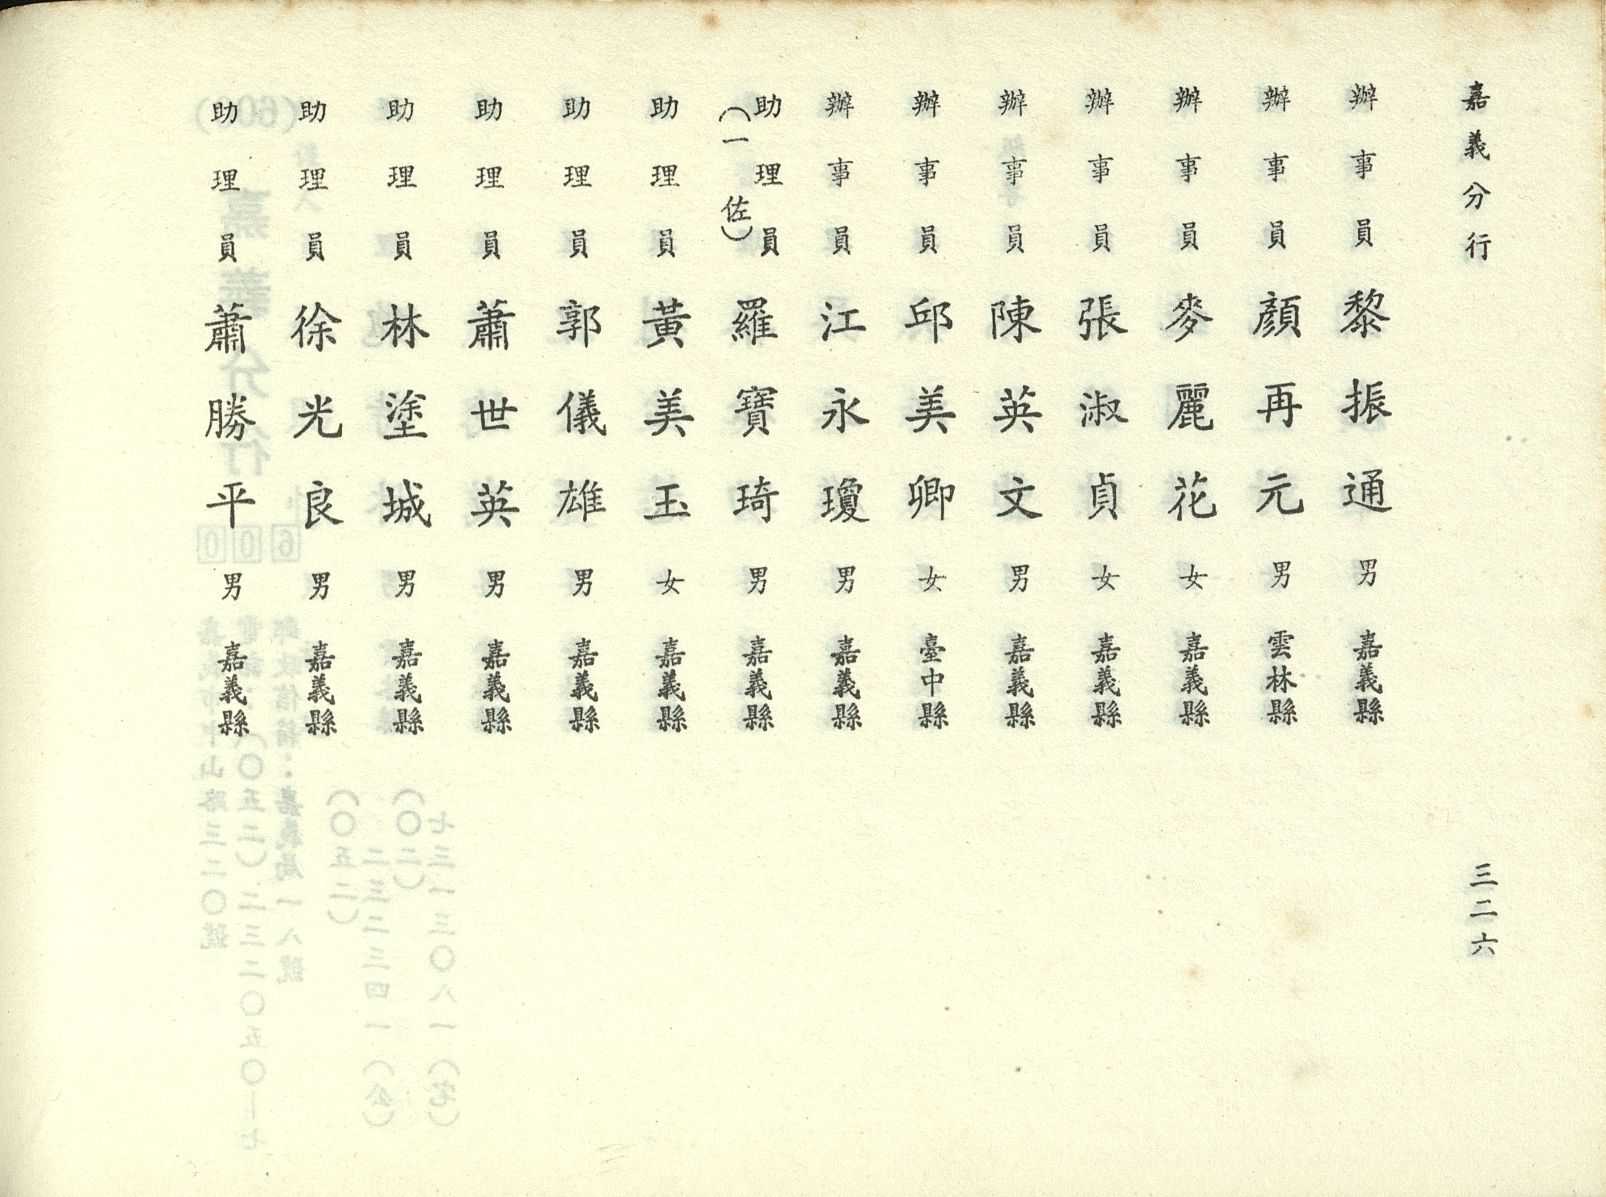 嘉義分行
辦事員 黎振通 男 嘉義縣
辦事員 顏再元 男 雲林縣
辦事員 麥麗花 女 嘉義縣
辦事員 張淑貞 女 嘉義縣
辦事員 陳英文 男 嘉義縣
辦事員 邱美卿 女 臺中縣
辦事員 江永瓊 男 嘉義縣
助理員(一佐) 羅寶琦 男 嘉義縣
助理員 黃美玉 女 嘉義縣
助理員 郭儀雄 男 嘉義縣
助理員 蕭世英 男 嘉義縣
助理員 林塗城 男 嘉義縣
助理員 徐光良 男 嘉義縣
助理員 蕭勝平 男 嘉義縣
三二六